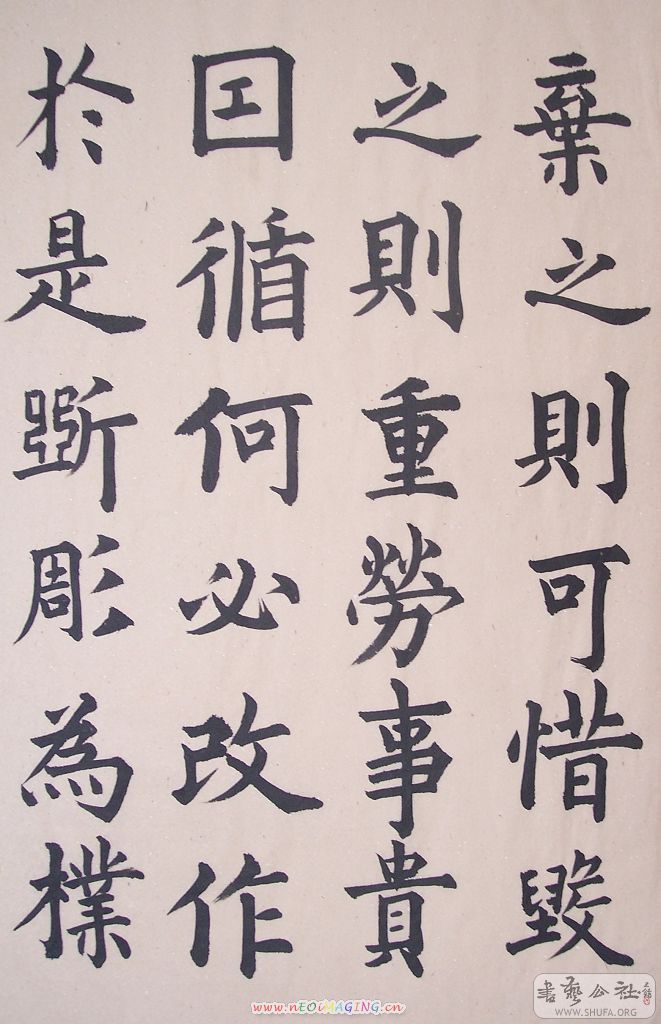 棄之則可惜毀
之則重勞事貴
因循何必改作
於是斲彫為樸
書藝公社
WWW.SHUFA.ORG
www.nEOiMAGING.cn